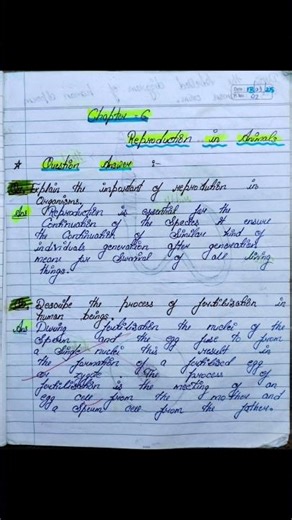 Chapter - 6
Reproduction in Animals
* Question Answer :-
Explain the important of reprodution in
Organisms.
Ans Reproduction is essential for the
Continuation of the Species It ensure
the Continuation of Similar kind of
individuals generation after generation
means for Survival of all living
things.
Describe the process of fertilisation in
human beings.
Ans During fertilization the nuclei of the
Sperm and the egg fuse to from
a Single nuclei this result in
the formation of a fertilised egg
or zygote. The process of
fertilisation is the meeting of an
egg cell from the mother and
a Sperm cell from the father.